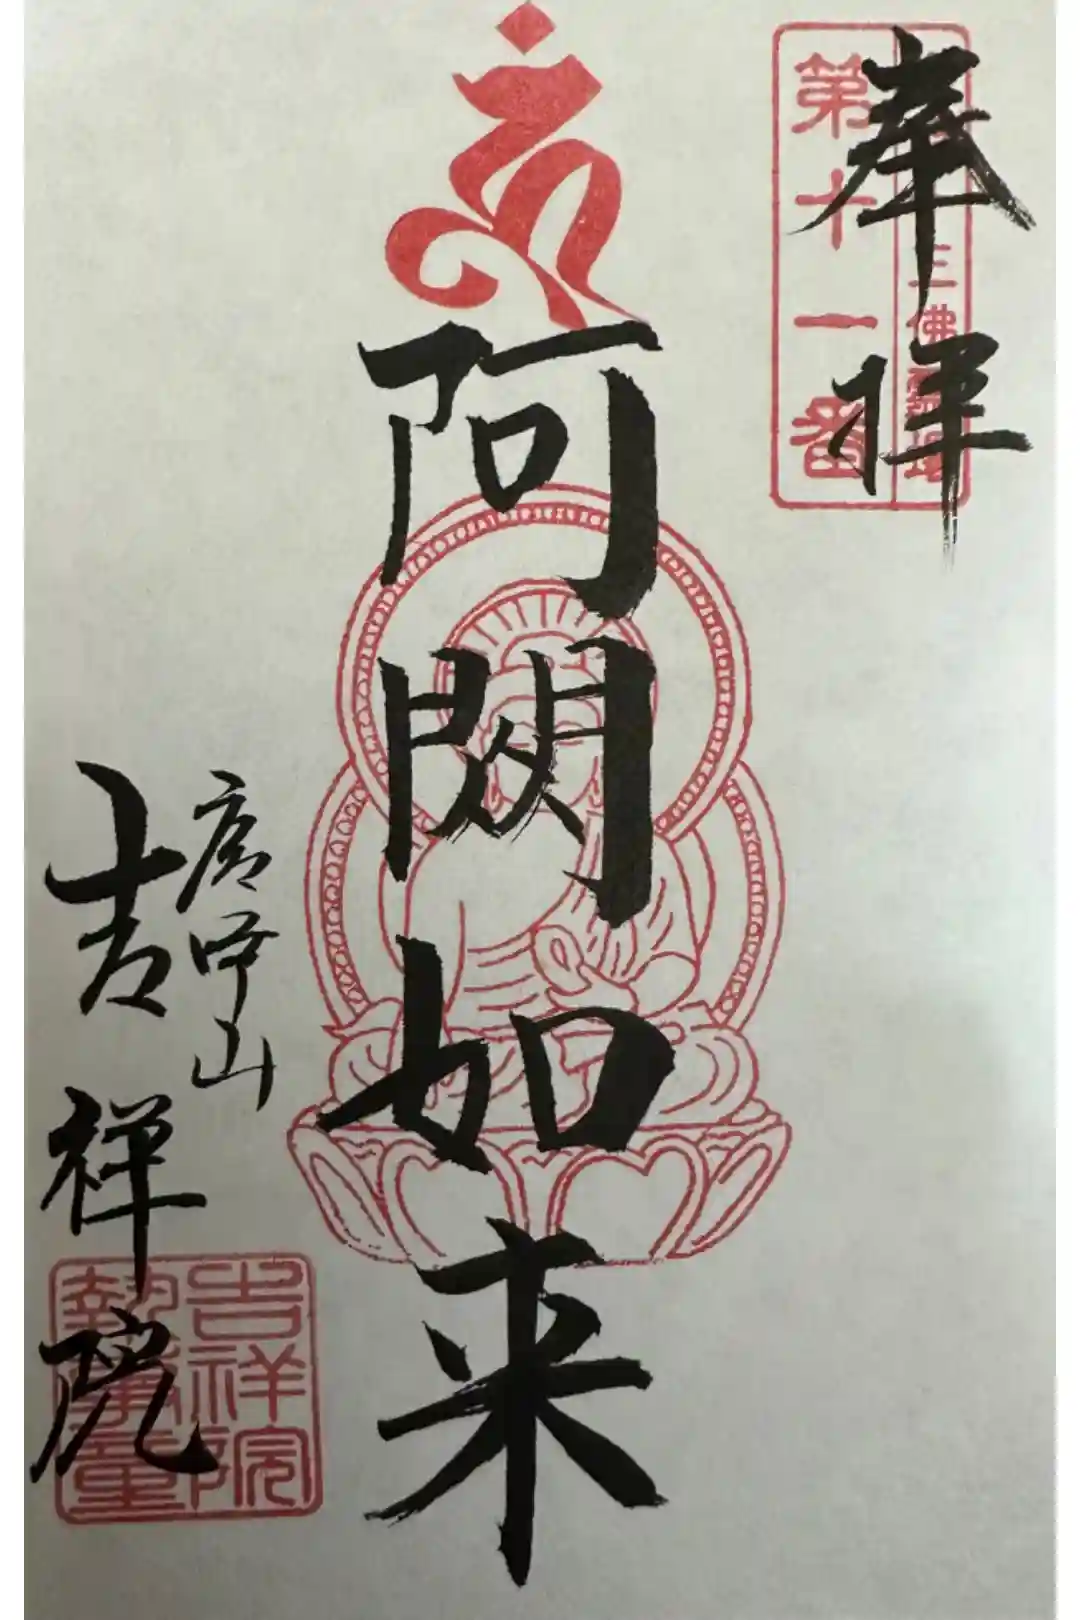 奉拝
三佛霊場
第十一番
阿閦如来
吉祥院
吉祥院
執事章